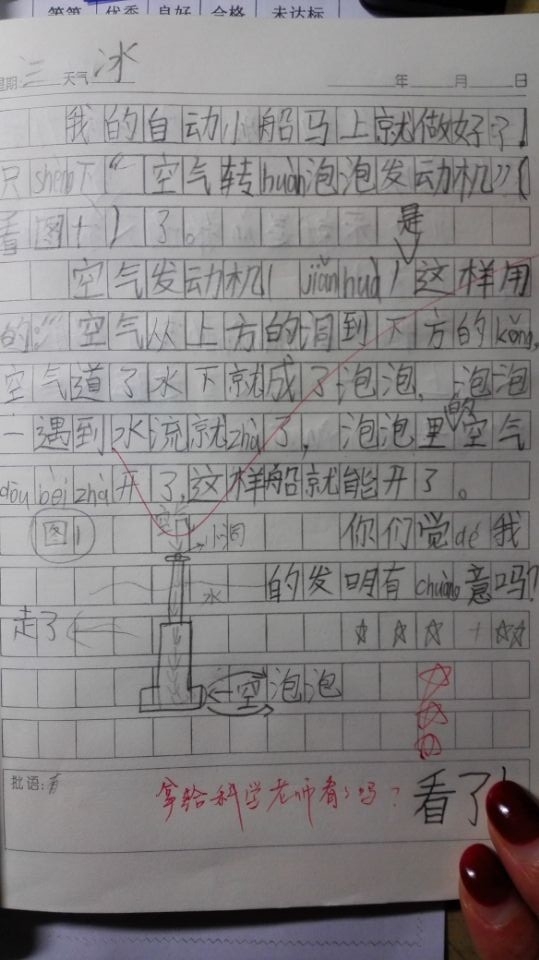 等第 优秀 良好 合格 未达标
星期:三 天气 冰 年 月 日
我的自动小船马上就做好了!
只shèng下"空气转huàn泡泡发动机"(
看图1)了。
是
空气发动机(jiǎn huà)这样用
的:"空气从上方的洞到下方的kǒng,
空气道了水下就成了泡泡,泡泡
一遇到水流就zhà了,泡泡里的空气
dōu bèi zhà开了,这样船就能开了。
图1 空气 你们觉dé我
小洞
水 的发明有chuàng意吗?
走了 ☆☆☆+☆☆
空 泡泡
批语:
拿给科学老师看了吗?
看了!